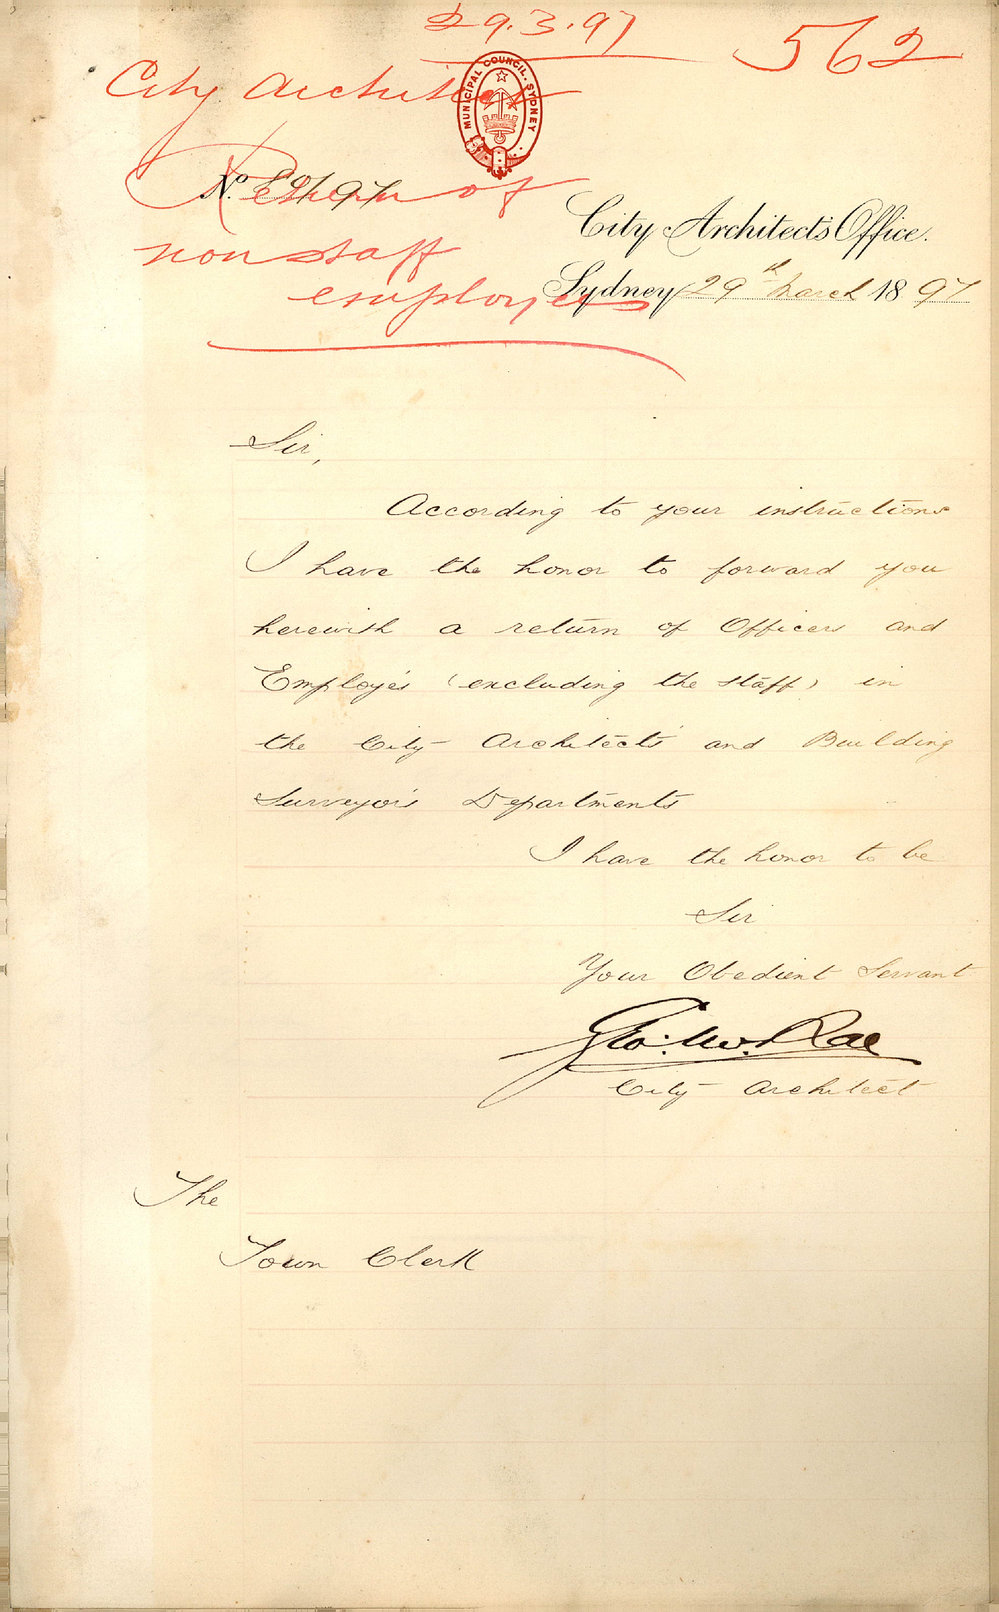 29.3.97
562
City Architect
MUNICIPAL COUNCIL. SYDNEY
Return of
No. 97
non staff
employes
City Architect's Office.
Sydney 29th March 1897
Sir,
According to your instructions
I have the honor to forward you
herewith a return of Officers and
Employés (excluding the staff) in
the City Architect's and Building
Surveyor's Departments
I have the honor to be
Sir
Your Obedient Servant
Geo: McRae
City Architect
The
Town Clerk